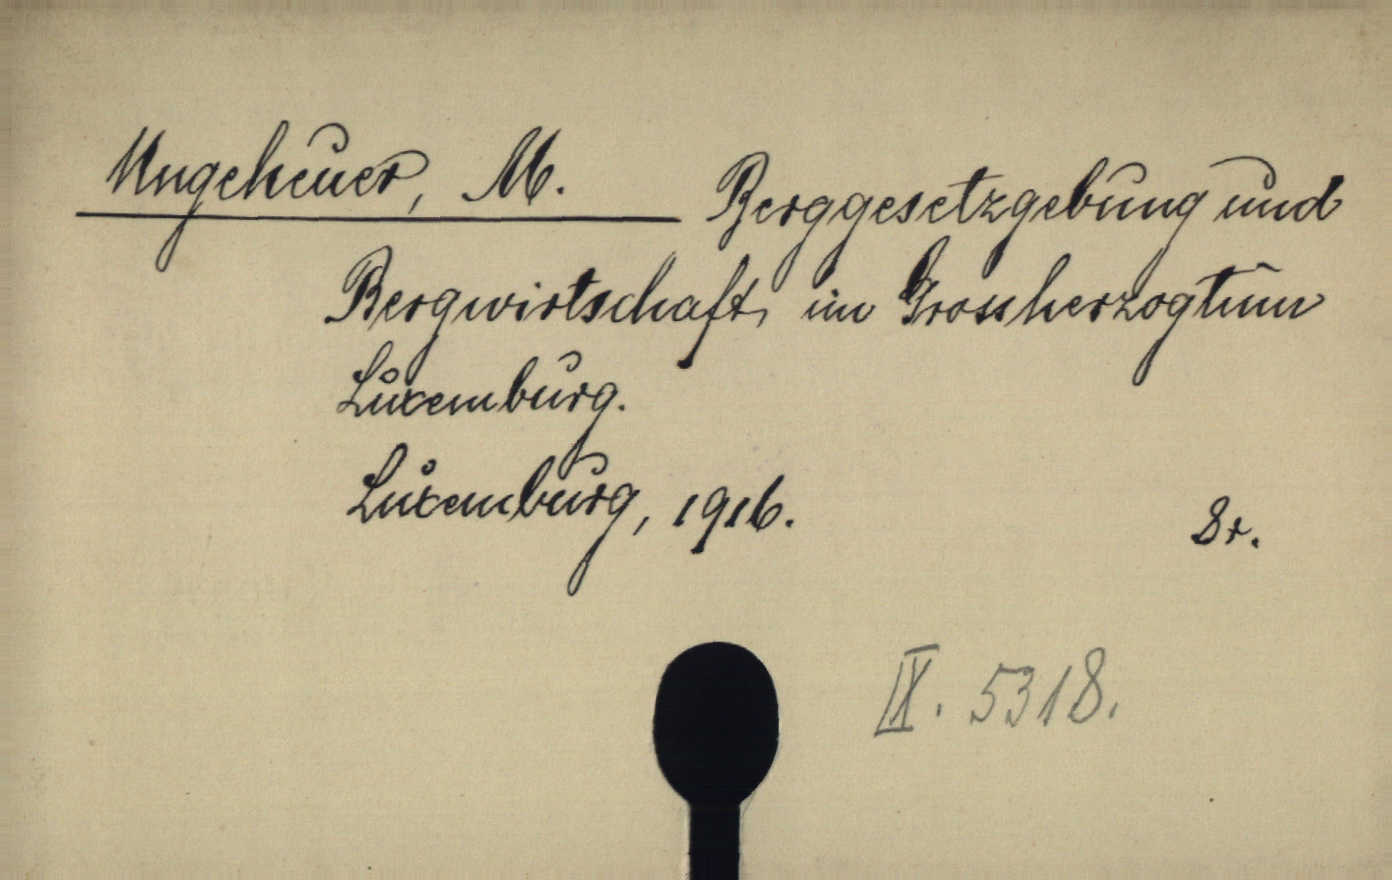 Ungeheuer, M. Berggesetzgebung und
Bergwirtschaft, im Grossherzogtum
Luxemburg.
Luxemburg, 1916. 8r.
IX. 5318.